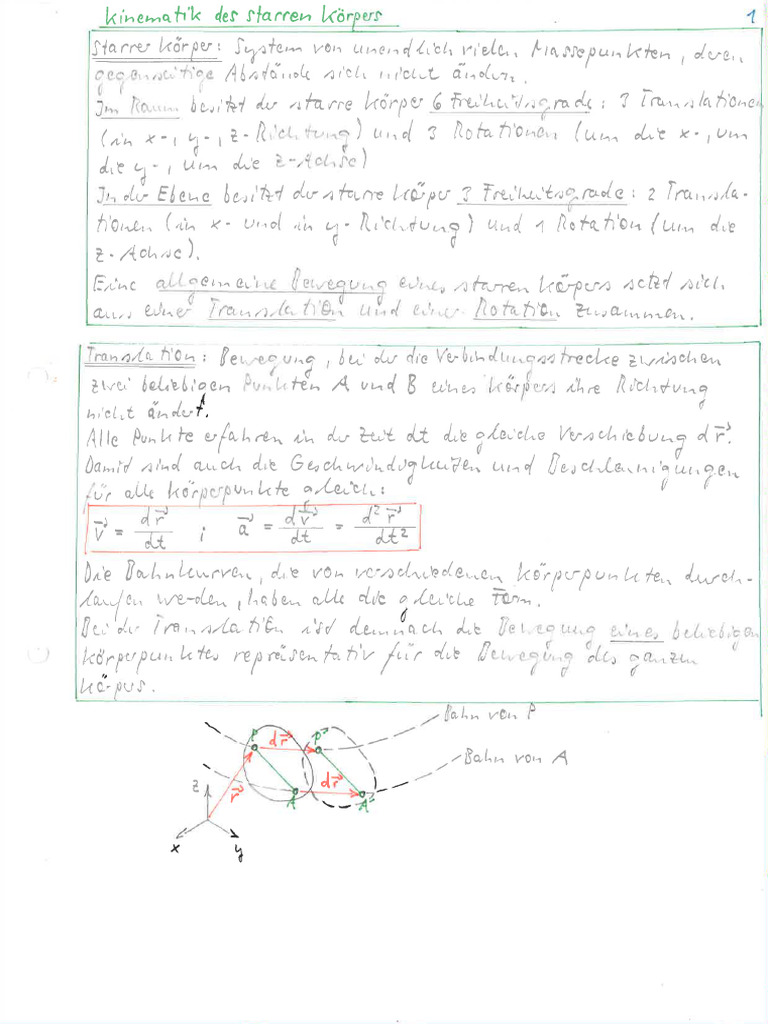 Kinematik des starren Körpers 1
Starrer Körper: System von unendlich vielen Massepunkten, deren
gegenseitige Abstände sich nicht ändern.
Im Raum besitzt der starre Körper 6 Freiheitsgrade: 3 Translationen
(in x-, y-, z-Richtung) und 3 Rotationen (um die x-, um
die y-, um die z-Achse)
In der Ebene besitzt der starre Körper 3 Freiheitsgrade: 2 Transla-
tionen (in x- und in y-Richtung) und 1 Rotation (um die
z-Achse).
Eine allgemeine Bewegung eines starren Körpers setzt sich
aus einer Translation und einer Rotation zusammen.
Translation: Bewegung, bei der die Verbindungsstrecke zwischen
zwei beliebigen Punkten A und B eines Körpers ihre Richtung
nicht ändert.
Alle Punkte erfahren in der Zeit dt die gleiche Verschiebung dr⃗.
Damit sind auch die Geschwindigkeiten und Beschleunigungen
für alle Körperpunkte gleich:
v⃗ = dr⃗/dt ; a⃗ = dv⃗/dt = d²r⃗/dt²
Die Bahnkurven, die von verschiedenen Körperpunkten durch-
laufen werden, haben alle die gleiche Form.
Bei der Translation ist demnach die Bewegung eines beliebigen
Körperpunktes repräsentativ für die Bewegung des ganzen
Körpers.
Bahn von P
P dr⃗ P'
Bahn von A
z r⃗ A dr⃗ A'
x y